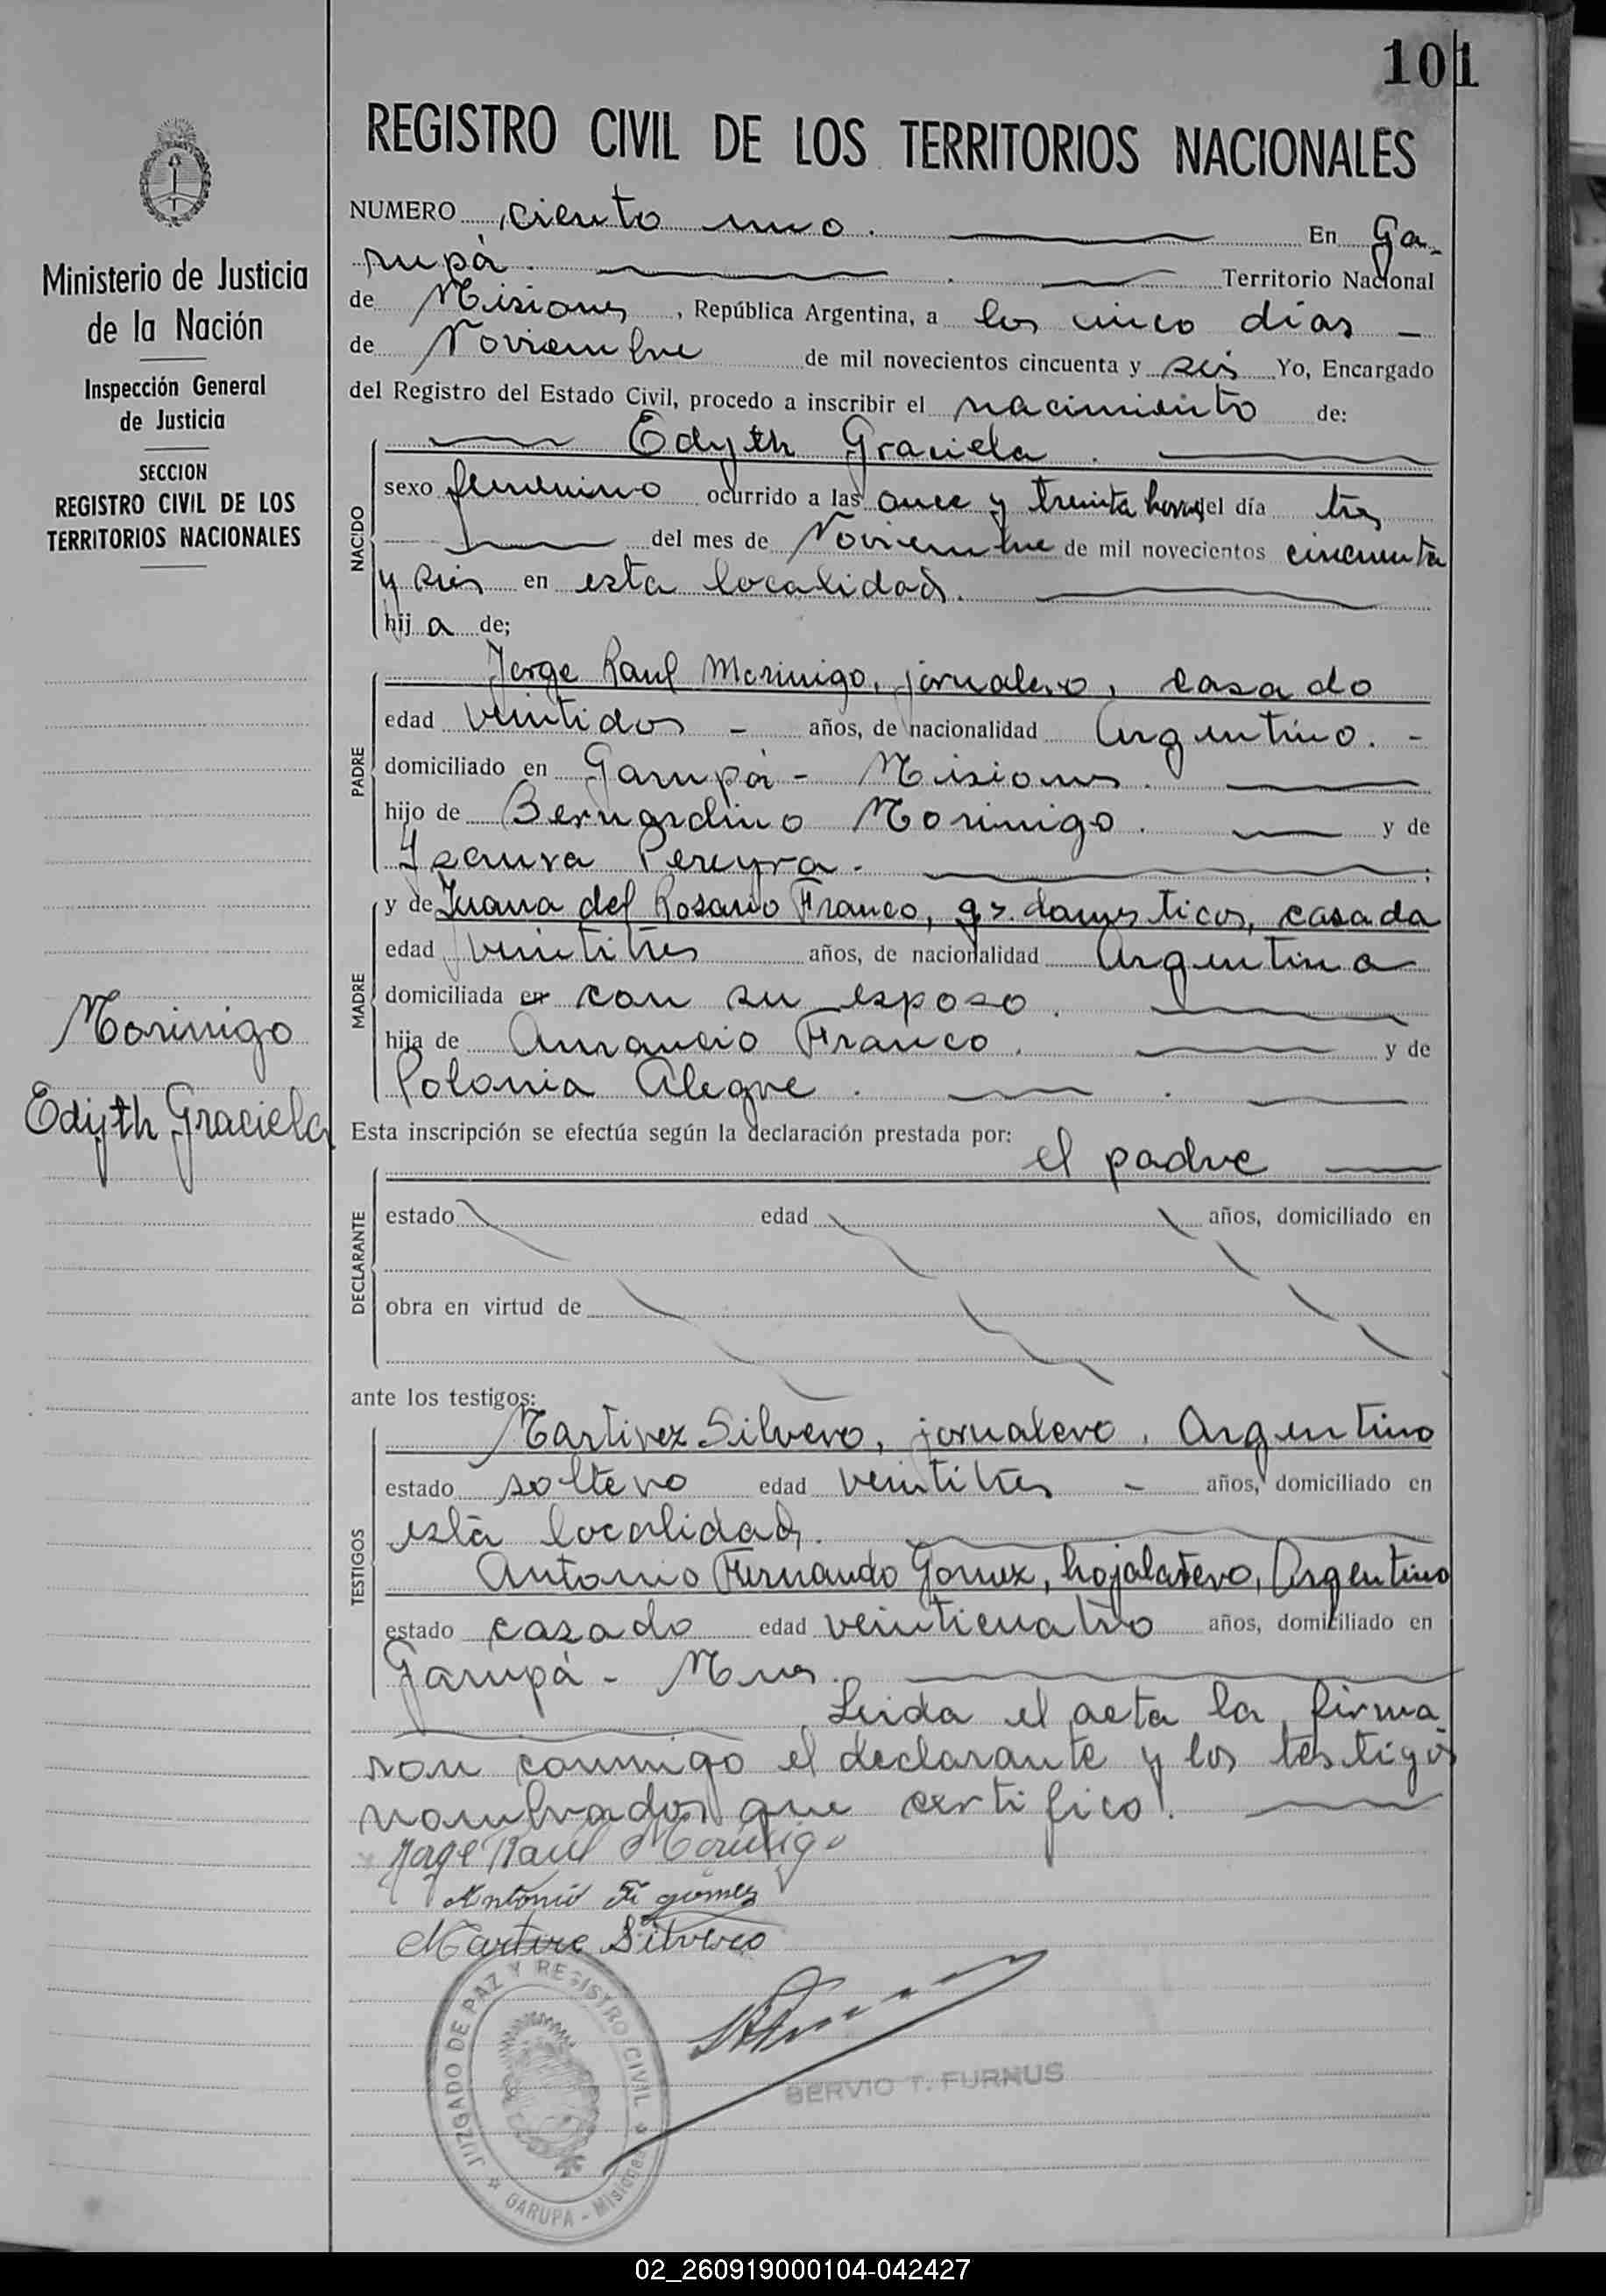 101
REGISTRO CIVIL DE LOS TERRITORIOS NACIONALES
Ministerio de Justicia
de la Nación
Inspección General
de Justicia
SECCION
REGISTRO CIVIL DE LOS
TERRITORIOS NACIONALES
Morinigo
Edyth Graciela
NUMERO ciento uno. En Ga-
rupá. Territorio Nacional
de Misiones, República Argentina, a los cinco días
de Noviembre de mil novecientos cincuenta y seis Yo, Encargado
del Registro del Estado Civil, procedo a inscribir el nacimiento de:
Edyth Graciela.
NACIDO
sexo femenino ocurrido a las once y treinta horas del día tres
del mes de Noviembre de mil novecientos cincuenta
y seis en esta localidad.
hija de;
PADRE
Jorge Raul Morinigo, jornalero, casado
edad veintidos - años, de nacionalidad Argentino. -
domiciliado en Garupá - Misiones.
hijo de Bernardino Morinigo. y de
Ysaura Pereyra. ;
MADRE
y de Juana del Rosario Franco, qs. domesticos, casada
edad veintitres años, de nacionalidad Argentina
domiciliada en con su esposo.
hija de Amancio Franco. y de
Polonia Alegre.
Esta inscripción se efectúa según la declaración prestada por:
el padre
DECLARANTE
estado edad años, domiciliado en
obra en virtud de
ante los testigos:
TESTIGOS
Martirez Silvero, jornalero, Argentino
estado soltero edad veintitres - años, domiciliado en
esta localidad.
Antonio Fernando Gomez, hojalatero, Argentino
estado casado edad veinticuatro años, domiciliado en
Garupá - Mnes.
Leida el acta la firma-
ron conmigo el declarante y los testigos
nombrados que certifico.
Jorge Raul Morinigo
Antonio F. gomez
Martire Silvero
JUZGADO DE PAZ Y REGISTRO CIVIL
GARUPA - Misiones
SERVIO T. FURNUS
02_260919000104-042427